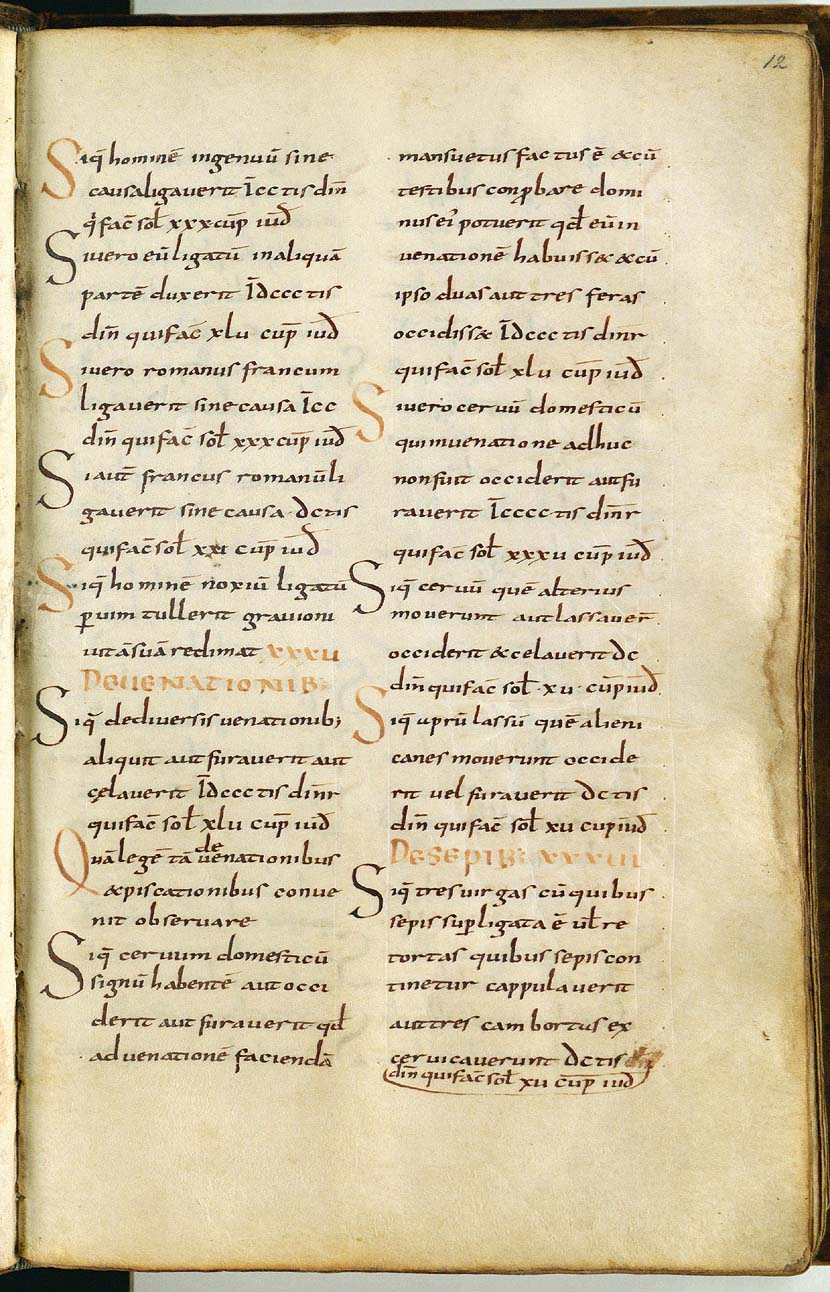 12
Siq̄ hominē ingenuū sine
causa ligauerit Īcc tis din̄
q̇ fac̄ sol̄ xxx cup̄ iud̄
Siuero eū ligatū in aliquā
partē duxerit Īdccc tis
din̄ qui fac̄ xlu cup̄ iud̄
Siuero romanus francum
ligauerit sine causa Īcc
din̄ qui fac̄ sol̄ xxx cup̄ iud̄
Siaut̄ francus romanū li
gauerit sine causa · dc tis
qui fac̄ sol̄ cup̄ iud̄
Siq̄ hominē noxiū ligatū
p̱ uim tullerit grauioni
uitā suā redimat xxxii
DEUENATIONIB:
Siq̄ dediuersis uenationib;
aliquit aut furauerit aut
celauerit Īdccc tis din̄r
qui fac̄ sol̄ xlu cup̄ iud̄
Quā legē tā de uenationibus
&piscationibus conue
nit obseruare
Siq̄ ceruum domesticū
signū habentē aut occi
derit aut furauerit qd̄
aduenationē faciendā
mansuetus factus ē &cū
testibus conp̱bare domi
nus ei potuerit qd̄ eū in
uenationē habuiss& &cū
ipso duas aut tres feras
occidiss& Īdccc tis din̄r
qui fac̄ sol̄ xlu cup̄ iud̄
Siuero ceruū domesticū
qui inuenatione adhuc
non fuit occiderit aut fu
rauerit Īcccc tis din̄r
qui fac̄ sol̄ xxxu cup̄ iud̄
Siq̄ ceruū quē alterius
mouerunt aut lassauer̄
occiderit &celauerit dc
din̄ qui fac̄ sol̄ · xu · cup̄ iud̄
Siq̄ aprū lassū quē alieni
canes mouerunt occide
rit uel furauerit dc tis
din̄ qui fac̄ sol̄ xu cup iud̄
DESEPIB: XXXIII
Siq̄ tres uirgas cū quibus
sepis sup̱ligata ē ul̄ re
tortas quibus sepis con
tinetur cappulauerit
aut tres cambortus ex
ceruicauerunt dc tis
din̄ qui fac̄ sol̄ xu cup̄ iud̄